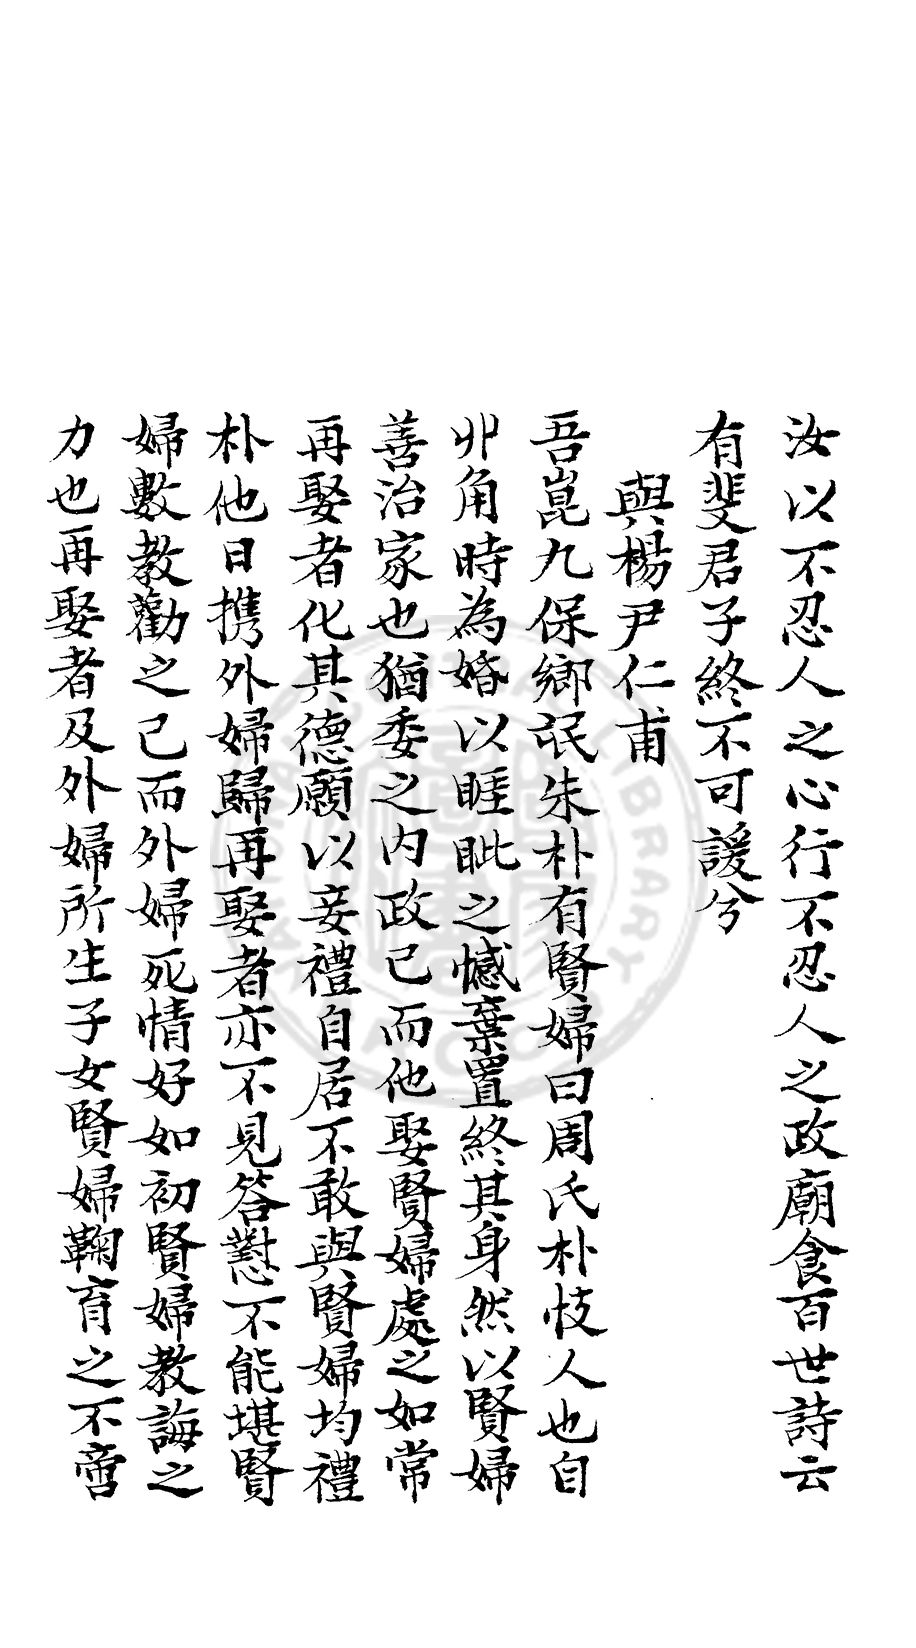 汝以不忍人之心行不忍人之政廟食百世詩云
有斐君子終不可諼兮
與楊尹仁甫
吾崑九保鄉氓朱朴有賢婦曰周氏朴忮人也自
丱角時為婚以睚眦之憾棄置終其身然以賢婦
善治家也猶委之内政已而他娶賢婦處之如常
再娶者化其德願以妾禮自居不敢與賢婦均禮
朴他日携外婦歸再娶者亦不見答懟不能堪賢
婦數教勸之已而外婦死情好如初賢婦教誨之
力也再娶者及外婦所生子女賢婦鞠育之不啻